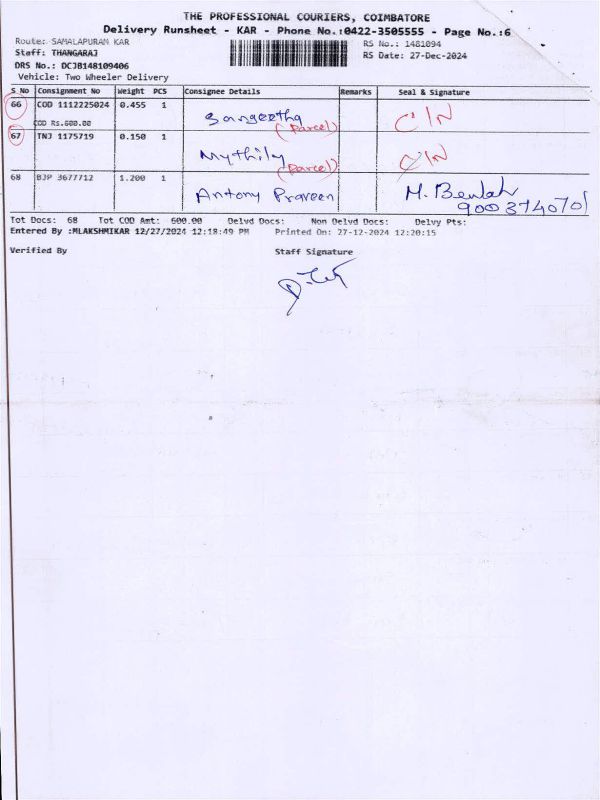 THE PROFESSIONAL COURIERS, COIMBATORE
Delivery Runsheet - KAR - Phone No.:0422-3505555 - Page No.:6
Route: SAMALAPURAM KAR
RS No.: 1481094
Staff: THANGARAJ
RS Date: 27-Dec-2024
DRS No.: DCJB148109406
Vehicle: Two Wheeler Delivery
S No Consignment No Weight PCS Consignee Details Remarks Seal & Signature
66 COD 1112225024 0.455 1 Sangeetha C/N
COD Rs.600.00 (Parcel)
67 TNJ 1175719 0.150 1 Mythily C/N
(Parcel)
68 BJP 3677712 1.200 1 Antony Praveen M. Beulah
9003740701
Tot Docs: 68 Tot COD Amt: 600.00 Delvd Docs: Non Delvd Docs: Delvy Pts:
Entered By :MLAKSHMIKAR 12/27/2024 12:18:49 PM Printed On: 27-12-2024 12:20:15
Verified By Staff Signature